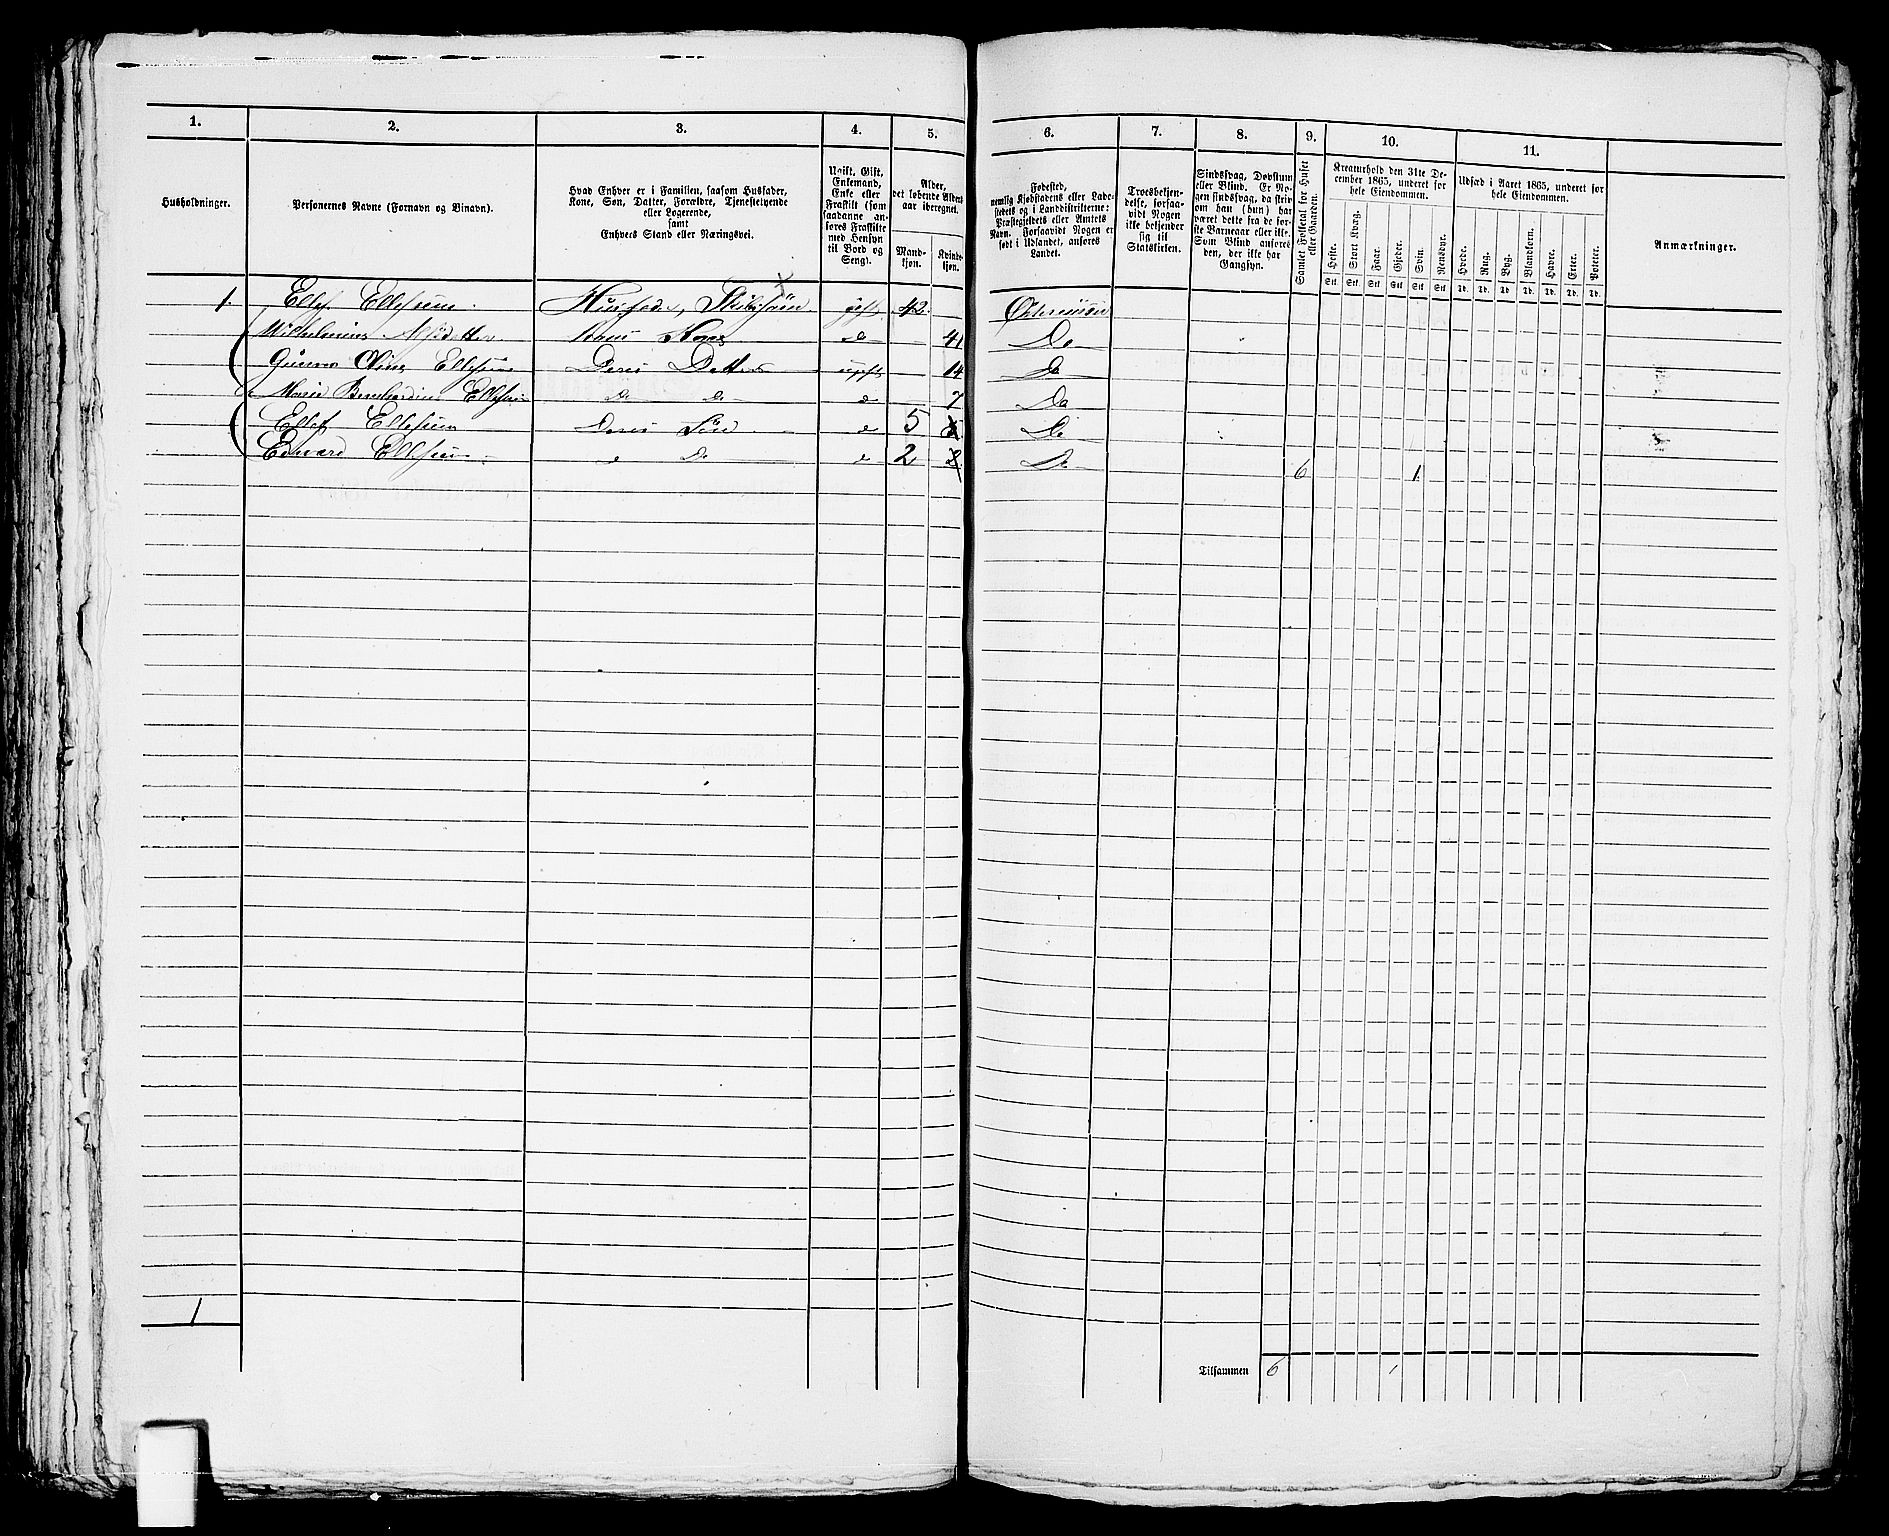 1. 2. 3. 4. 5. 6. 7. 8. 9. 10. 11.
Husholdninger.
Personernes Navne (Fornavn og Binavn).
Hvad Enhver er i Familien, saasom Husfader,
Kone, Søn, Datter, Forældre, Tjenestetyende
eller Logerende,
samt
Enhvers Stand eller Næringsvei.
Ugift, Gift,
Enkemand,
Enke eller
Fraskilt (som
saadanne an-
føres Fraskilte
med Hensyn
til Bord og
Seng).
Alder,
det løbende Alders-
aar iberegnet.
Mand-
kjøn.
Kvinde-
kjøn.
Fødested,
nemlig Kjøbstadens eller Lade-
stedets og i Landdistrikterne:
Præstegjeldets eller Amtets
Navn. Forsaavidt Nogen er
født i Udlandet, anføres
Landet.
Troesbekjen-
delse, forsaa-
vidt Nogen
ikke bekjender
sig til
Statskirken.
Sindssvag, Døvstum
eller Blind. Er No-
gen sindssvag, da skriv
om han (hun) har
været dette fra de før-
ste Barneaar eller ikke.
Som Blind anføres
den, der ikke har
Gangsyn.
Samlet Folketal for Huset
eller Gaarden.
Kreaturhold den 31te De-
cember 1865, underet for
hele Eiendommen.
Heste. Stort Kvæg. Faar. Gjeder. Svin. Rensdyr.
Stk. Stk. Stk. Stk. Stk. Stk.
Udsæd i Aaret 1865, underet for
hele Eiendommen.
Hvede. Rug. Byg. Blandkorn. Havre. Erter. Poteter.
Td. Td. Td. Td. Td. Td. Td.
Anmærkninger.
1. Ellef Ellefsen Husfader, gift 42. Østerriisøer
Wilhelmine Kone do 41 Do
Gunda Oline Ellefsen Deres Datter ugift 14 Do
Marie Bernhardine Ellefsen do do d 7 Do
Ellef Ellefsen Deres Søn d 5 Do
Edvard Ellefsen d do d 2 Do
6 1
1
Tilsammen 6 1